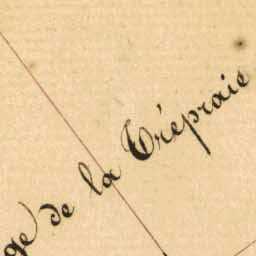 ge de la Trépraie